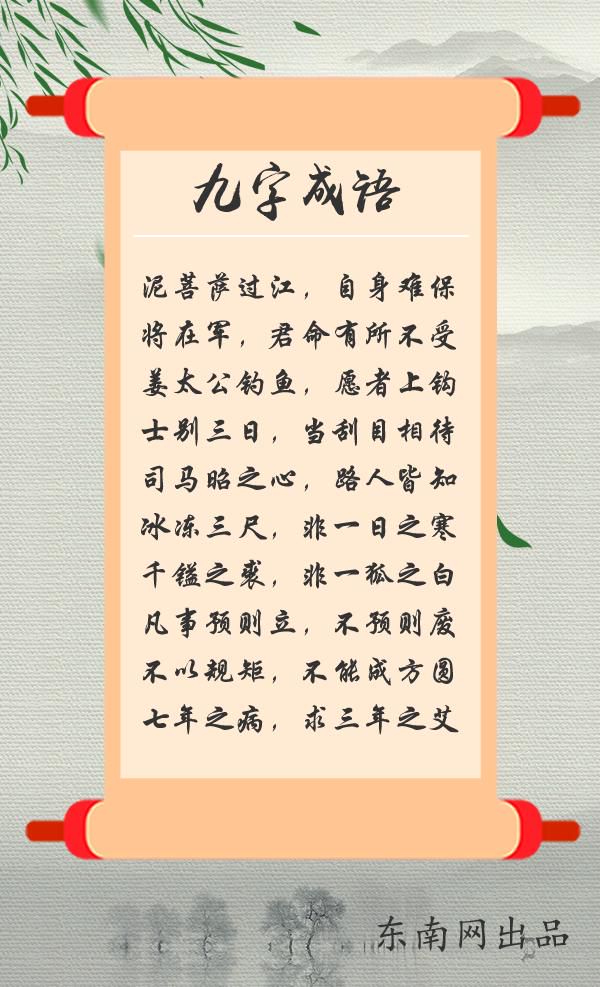 九字成语
泥菩萨过江，自身难保
将在军，君命有所不受
姜太公钓鱼，愿者上钩
士别三日，当刮目相待
司马昭之心，路人皆知
冰冻三尺，非一日之寒
千镒之裘，非一狐之白
凡事预则立，不预则废
不以规矩，不能成方圆
七年之病，求三年之艾
东南网出品